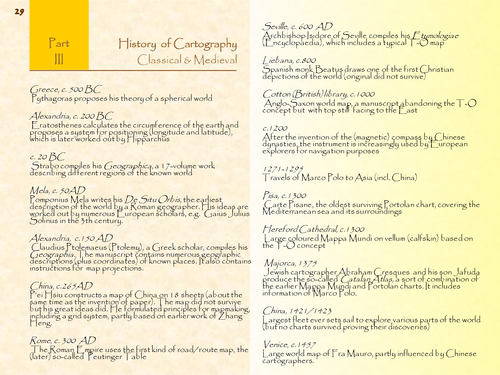 29
Part
III
History of Cartography
Classical & Medieval
Greece, c. 500 BC
Pythagoras proposes his theory of a spherical world
Alexandria, c. 200 BC
Eratosthenes calculates the circumference of the earth and
proposes a system for positioning (longitude and latitude),
which is later worked out by Hipparchus
c. 20 BC
Strabo compiles his Geographica, a 17-volume work
describing different regions of the known world
Mela, c. 50AD
Pomponius Mela writes his De Situ Orbis, the earliest
description of the world by a Roman geographer. His ideas are
worked out by numerous European scholars, e.g. Gaius Julius
Solinus in the 3th century.
Alexandria, c.150 AD
Claudius Ptolemaeus (Ptolemy), a Greek scholar, compiles his
Geographia. The manuscript contains numerous geographic
descriptions (plus coordinates) of known places. It also contains
instructions for map projections.
China, c.265AD
Pei Hsiu constructs a map of China on 18 sheets (about the
same time as the invention of paper). The map did not survive
but his great ideas did. He formulated principles for mapmaking,
including a grid system, partly based on earlier work of Zhang
Heng.
Rome, c. 300 AD
The Roman Empire uses the first kind of road/route map, the
(later) so-called Peutinger Table
Seville, c. 600 AD
Archbishop Isidore of Seville compiles his Etymologiae
(Encyclopaedia), which includes a typical T-O map
Liebana, c.800
Spanish monk Beatus draws one of the first Christian
depictions of the world (original did not survive)
Cotton (British) library, c.1000
Anglo-Saxon world map, a manuscript abandoning the T-O
concept but with top still facing to the East
c.1200
After the invention of the (magnetic) compass by Chinese
dynasties, the instrument is increasingly used by European
explorers for navigation purposes
1271-1295
Travels of Marco Polo to Asia (incl. China)
Pisa, c.1300
Carte Pisane, the oldest surviving Portolan chart, covering the
Mediterranean sea and its surroundings
Hereford Cathedral, c.1300
Large coloured Mappa Mundi on vellum (calfskin) based on
the T-O concept
Majorca, 1375
Jewish cartographer Abraham Cresques and his son Jafuda
produce the so-called Catalan Atlas, a sort of combination of
the earlier Mappa Mundi and Portolan charts. It includes
information of Marco Polo.
China, 1421/1423
Largest fleet ever sets sail to explore various parts of the world
(but no charts survived proving their discoveries)
Venice, c.1457
Large world map of Fra Mauro, partly influenced by Chinese
cartographers.